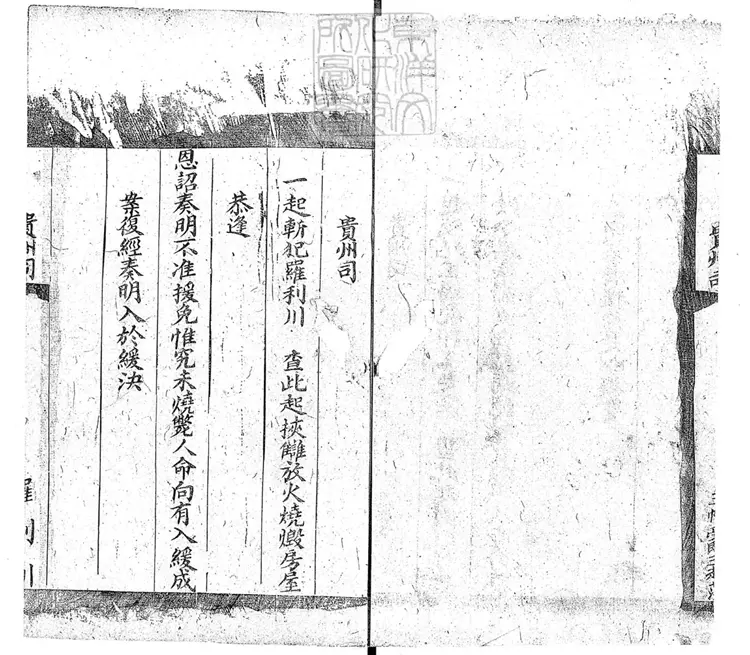 貴州司
一起斬犯羅利川 查此起挾讎放火燒燬房屋
恭逢
恩詔奏明不准援免惟究未燒斃人命向有入緩成
案復經奏明入於緩決
貴州司
羅利川